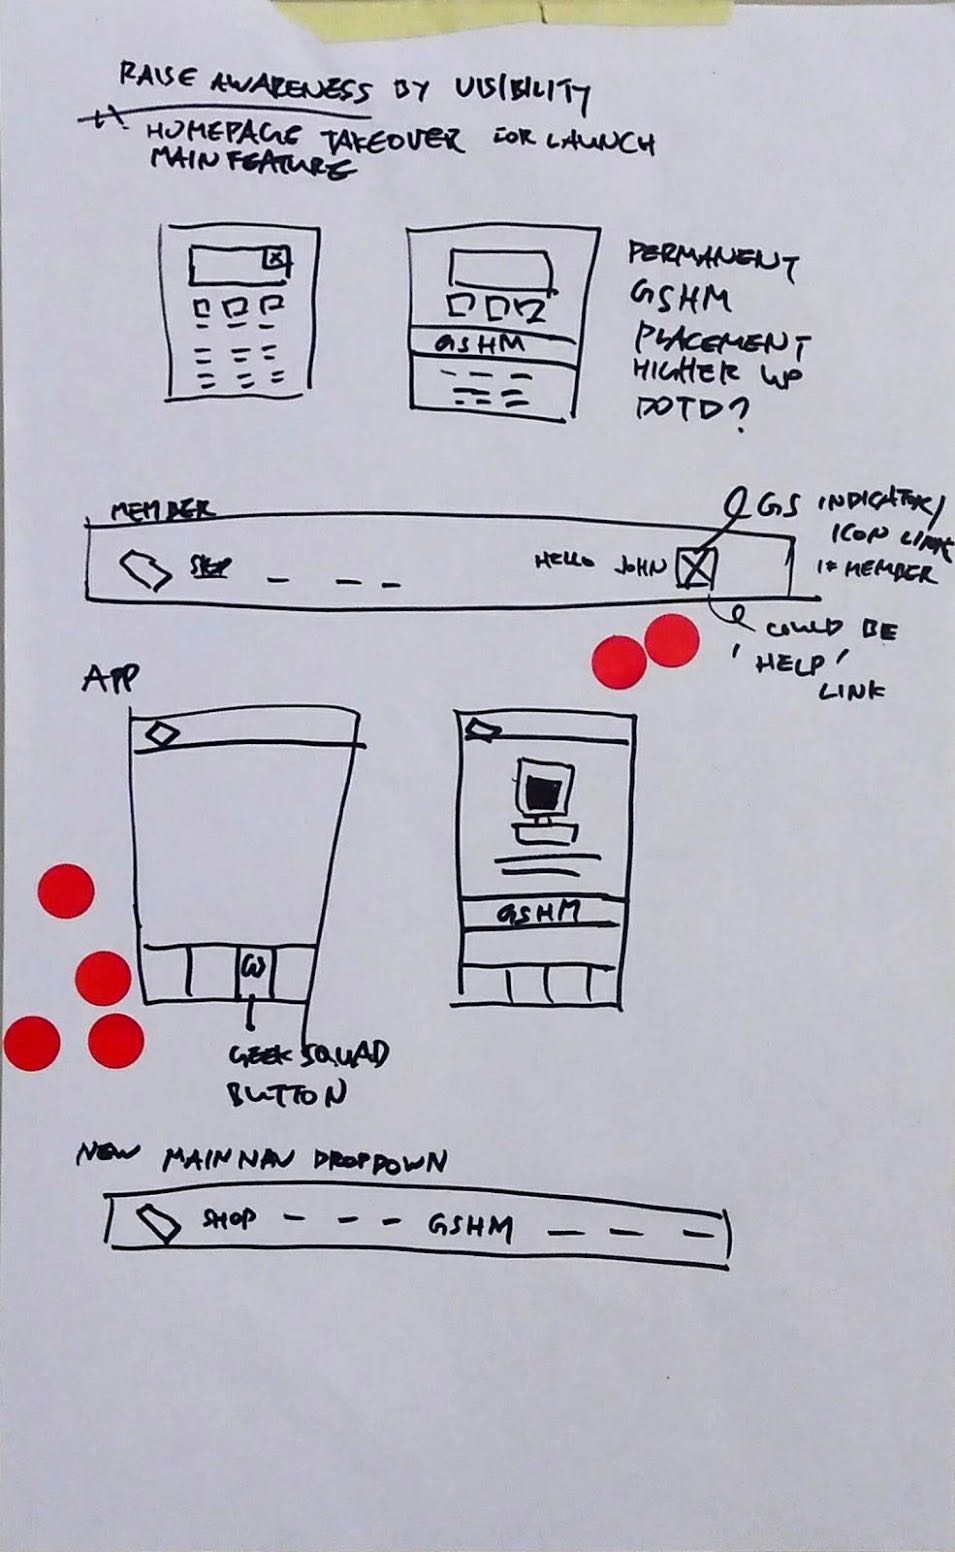 RAISE AWARENESS BY VISIBILITY
HOMEPAGE TAKEOVER FOR LAUNCH
MAIN FEATURE
GSHM
PERMANENT
GSHM
PLACEMENT
HIGHER UP
DOTD?
MEMBER
HELLO JOHN
GS INDICATOR/
ICON LINK
IF MEMBER
COULD BE
'HELP'
LINK
APP
GSHM
GEEK SQUAD
BUTTON
NEW MAIN NAV DROPDOWN
SHOP GSHM